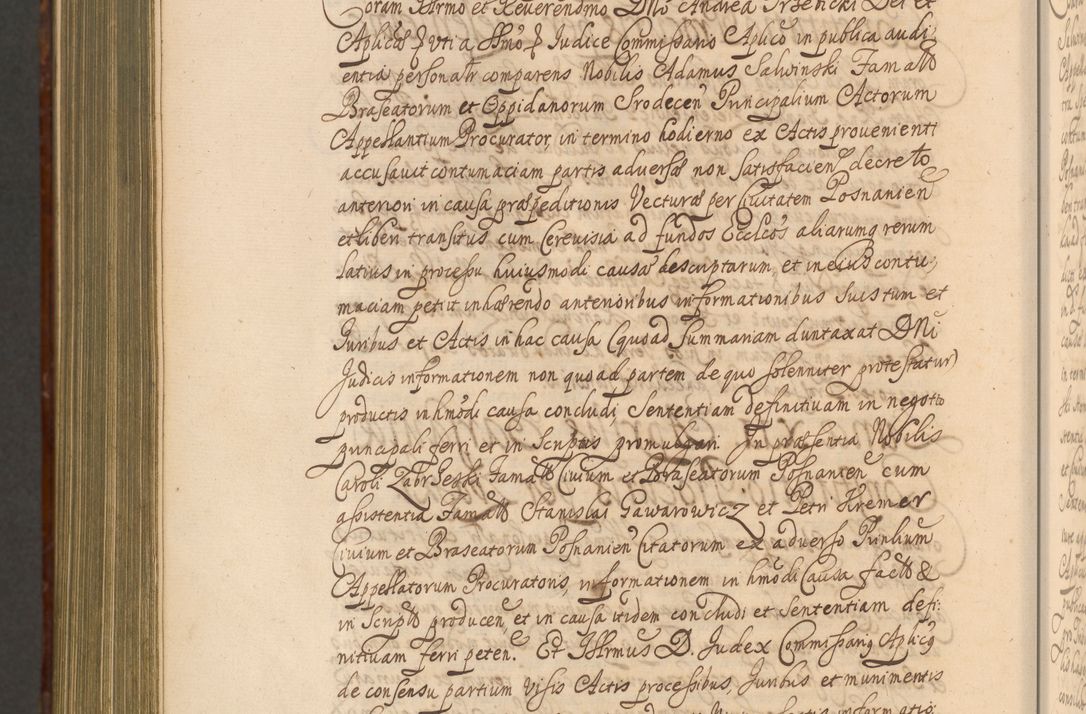 Coram Illrmo et Reverendmo Dno Andrea Trzebicki Dei et
Aplicæ uti a Judice Commissario Aplico in publica audi:
entia personalr comparens Nobilis Adamus Salwinski Famatt
Braseatorum et Oppidanorum Srodecen Principalium Actorum
Appellantium Procurator, in termino hodierno ex Actis provenienti
accusavit contumaciam partis adversæ non satisfacien decreto
anteriori in causa præpeditionis Vecturæ per Civitatem Posnanien
et liberi transitus cum Cerevisia ad fundos Ecclcos aliarumq rerum
latius in processu huiusmodi causæ descriptarum, et in eius contu:
maciam petiit inhærendo anterioribus informationibus suis tum et
Iuribus et Actis in hac causa (quoad summariam duntaxat DNi
Judicis informationem non quoad partem de quo solenniter protestatur)
productis in hmodi causa concludi, Sententiam definitivam in negotio
principali ferri et in Scriptis promulgari. In præsentia Nobilis
Caroli Zabrzeski Famatt Civium et Braseatorum Posnanien cum
assistentia Famatt Stanislai Gawarowicz et Petri Kremer
Civium et Braseatorum Posnanien Citatorum ex adverso Prinlium
Appellatorum Procuratoris, informationem in hmodi Causa facti &
in Scripto producen, et in causa itidem concludi et Sententiam defi:
nitivam ferri peten. Et Illrmus D. Judex Commissariq Aplicq
de consensu partium visis Actis processibus, Juribus et munimentis